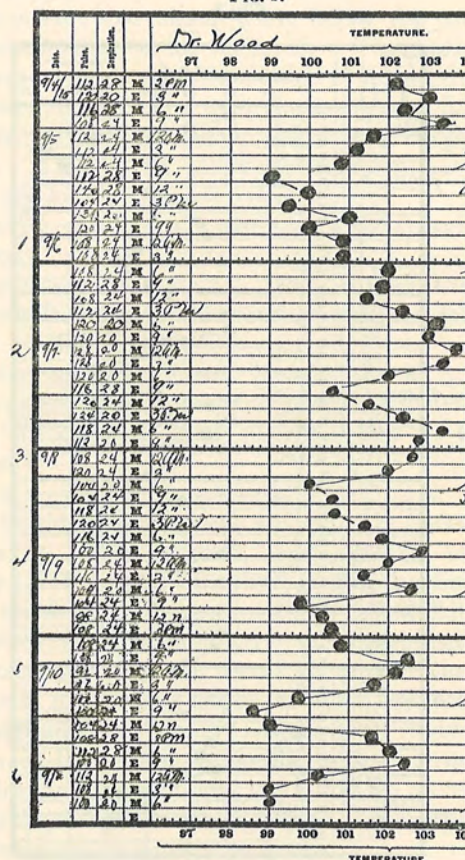 Dr. Wood TEMPERATURE.
Date. Pulse. Respiration. 97 98 99 100 101 102 103
9/4/15 112 28 M 2 pm
20 E 3 "
116 28 M 6 "
108 24 E 9 "
9/5 112 24 M 12 am.
112 24 E 3 "
112 24 M 6 "
112 28 E 9 "
140 28 M 12 "
104 24 E 3 P.M.
20 M 6 "
120 24 E 9 "
1 9/6 108 24 M 12 am.
108 24 E 3 "
108 24 M 6 "
112 28 E 9 "
108 24 M 12 "
112 24 E 3 P.M.
120 20 M 6 "
120 20 E 9 "
2 9/7 128 20 M 12 am.
128 20 E 3 "
120 20 M "
116 28 E 9 "
120 24 M 12 "
124 20 E 3 P.M.
118 24 M 6 "
112 20 E 9 "
3 9/8 108 24 M 12 am.
120 24 E 3 "
104 20 M 6 "
104 24 E 9 "
118 24 M 12 "
120 24 E 3 P.M.
116 24 M 6 "
100 20 E 9 "
4 9/9 108 24 M 12 am.
116 24 E 3 "
104 20 M 6 "
104 24 E 9 "
98 24 M 12 n
108 24 E 3 pm
108 24 M 6 "
108 E 9 "
5 9/10 96 20 M 12 am.
E 3 "
100 20 M 6 "
100 24 E 9 "
104 24 M 12 n
108 28 E 3 pm
112 28 M 6 "
100 20 E 9 "
6 112 24 M 12 am.
108 E 3 "
100 20 M 6 "
E
97 98 99 100 101 102 103
TEMPERATURE.